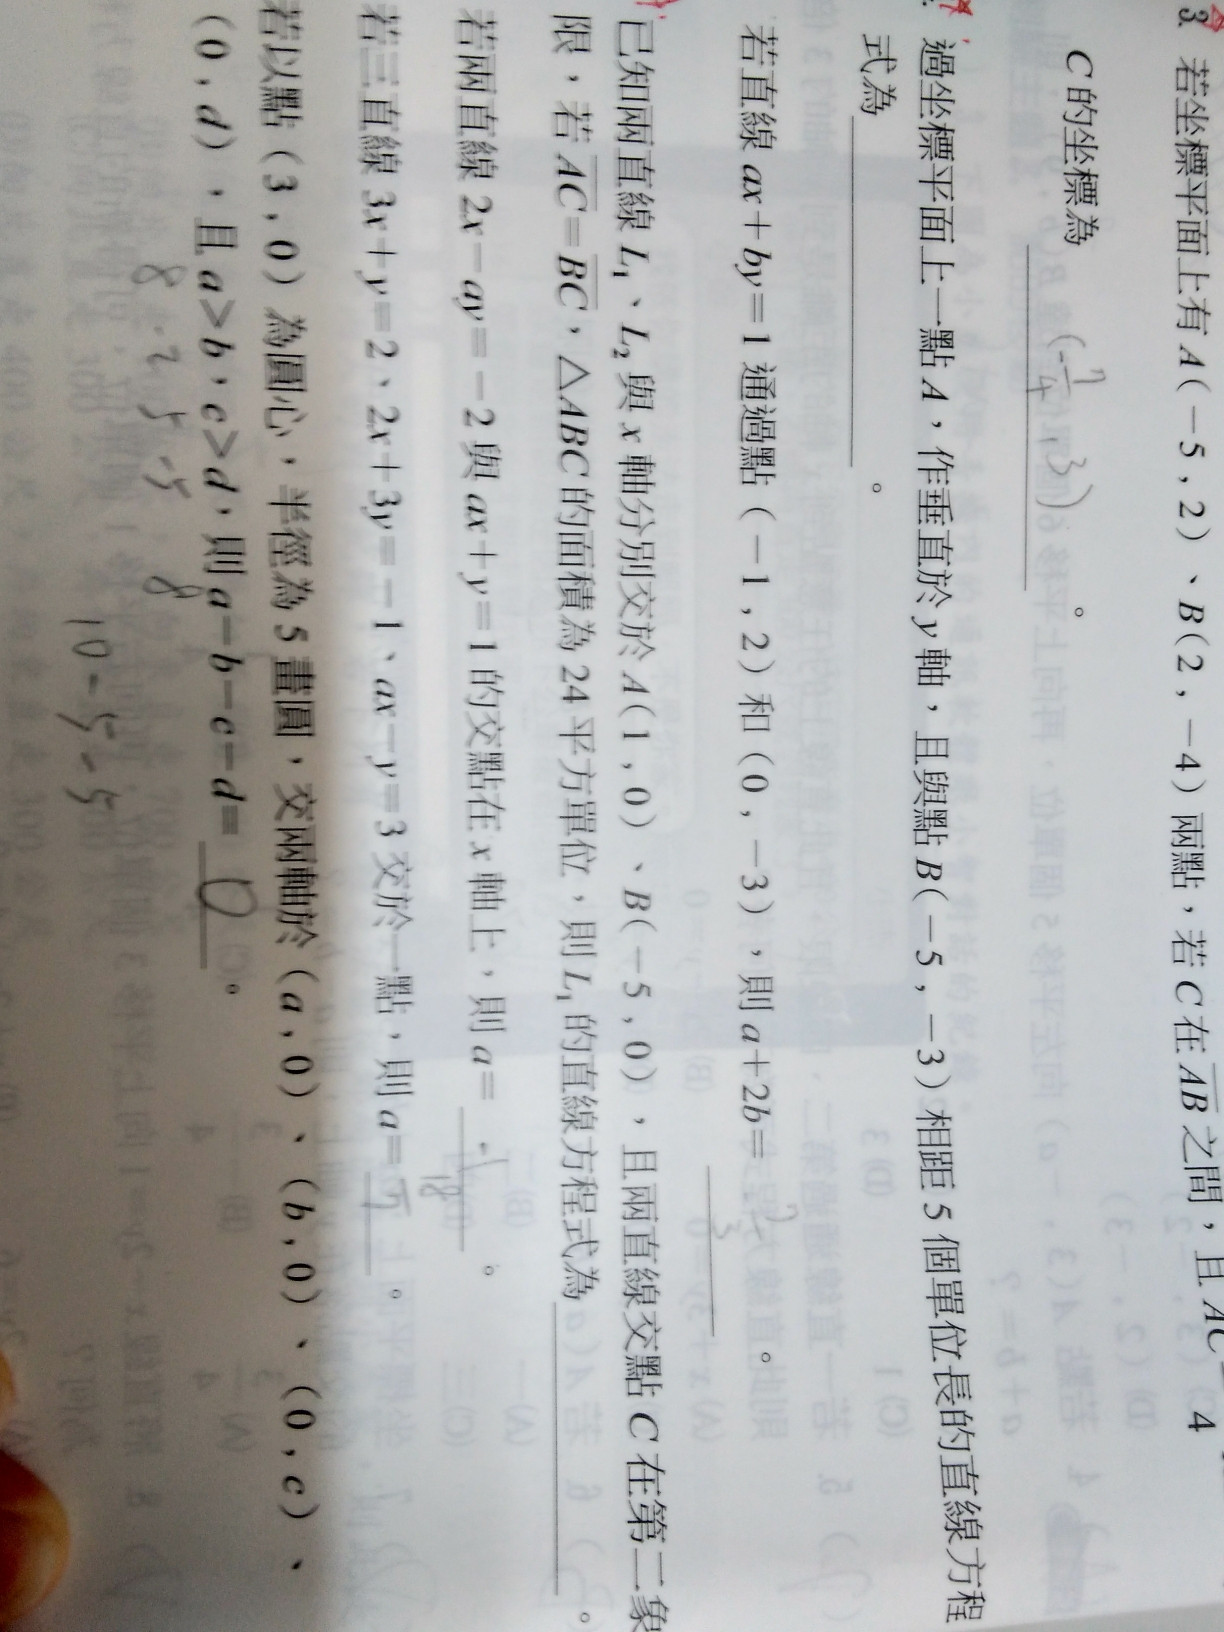 3. 若坐標平面上有 A(-5,2)、B(2,-4)兩點,若 C 在 AB 之間,且 AC= 4
C 的坐標為 。
過坐標平面上一點 A,作垂直於 y 軸,且與點 B(-5,-3)相距 5 個單位長的直線方程
式為 。
若直線 ax+by=1 通過點(-1,2)和(0,-3),則 a+2b= 。
已知兩直線 L₁、L₂ 與 x 軸分別交於 A(1,0)、B(-5,0),且兩直線交點 C 在第二象
限,若 AC=BC,△ABC 的面積為 24 平方單位,則 L₁ 的直線方程式為 。
若兩直線 2x-ay=-2 與 ax+y=1 的交點在 x 軸上,則 a= -1 。
若三直線 3x+y=2、2x+3y=-1、ax-y=3 交於一點,則 a= 。
若以點(3,0)為圓心,半徑為 5 畫圓,交兩軸於(a,0)、(b,0)、(0,c)、
(0,d),且 a>b,c>d,則 a-b-c-d= 0 。
8 -2 5 -5
8
10-5-5